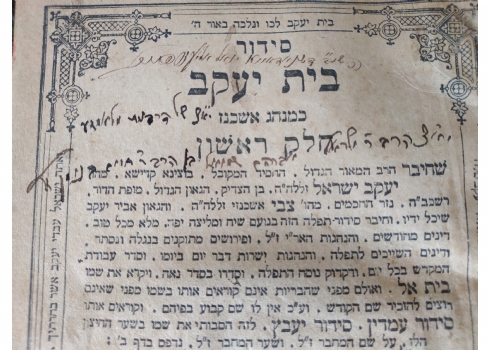 בית יעקב לכו ונלכה באור ה'
סידור
בית יעקב
כמנהג אשכנז
חלק ראשון
שחיבר הרב המאור הגדול, החסיד המקובל, בוצינא קדישא, כמהו'
יעקב ישראל זללה"ה, בן הצדיק, הגאון הגדול, מופת הדור,
רשכבה"ג, נזר החכמים, מהו' צבי אשכנזי זללה"ה, והגאון אביר יעקב
שיכל ידיו, וחיבר סידור-תפלה הזה בנועם שיח ומליצה יפה, מלא מכל טוב,
דינים מחודשים, והנהגות האר"י ז"ל, ופירושים מתוקנים בנגלה ונסתר,
ודינים השייכים לתפלה, והנהגות ישרות דבר יום ביומו, וסדר עבודת
המקדש בכל יום, ודקדוק נוסח התפלה, וסדרו בסדר נאה, ויקרא את שמו
בית אל, ואולם מפני שהבריות אינם קוראים אותו בשמו מפני שאינם
רוצים להזכיר שם הקודש, וע"כ אין לו שם קבוע בפיהם, וקוראים אותו
סידור עמדין, סידור יעבץ, לזה הסבותי את שמו בשער החיצון
הלז, על שם המחבר ז"ל, ושער המחבר ז"ל, נדפס בדף ב':